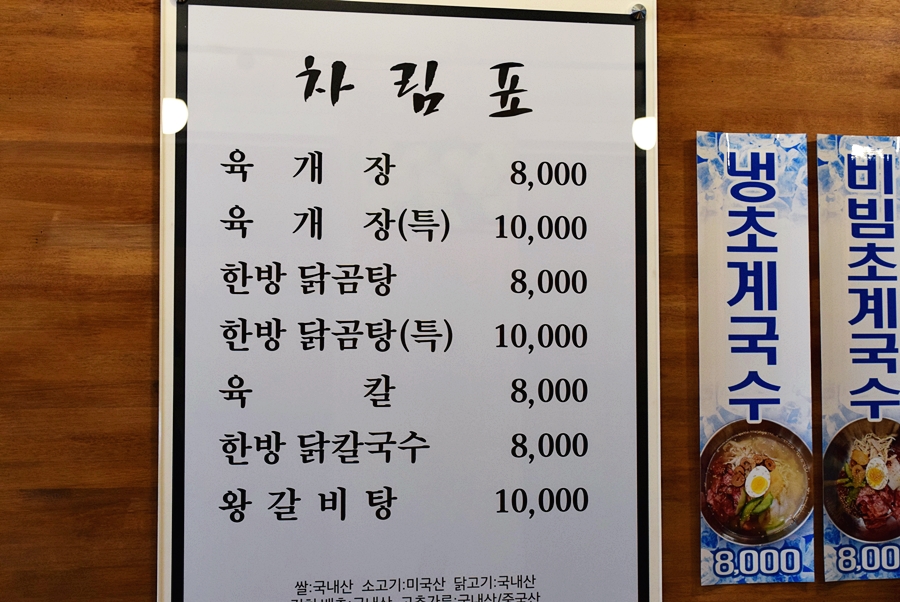 차림표
육개장 8,000
육개장(특) 10,000
한방 닭곰탕 8,000
한방 닭곰탕(특) 10,000
육칼 8,000
한방 닭칼국수 8,000
왕갈비탕 10,000
쌀:국내산 소고기:미국산 닭고기:국내산
고춧가루:국내산/중국산
냉초계국수
8,000
비빔초계국수
8,00